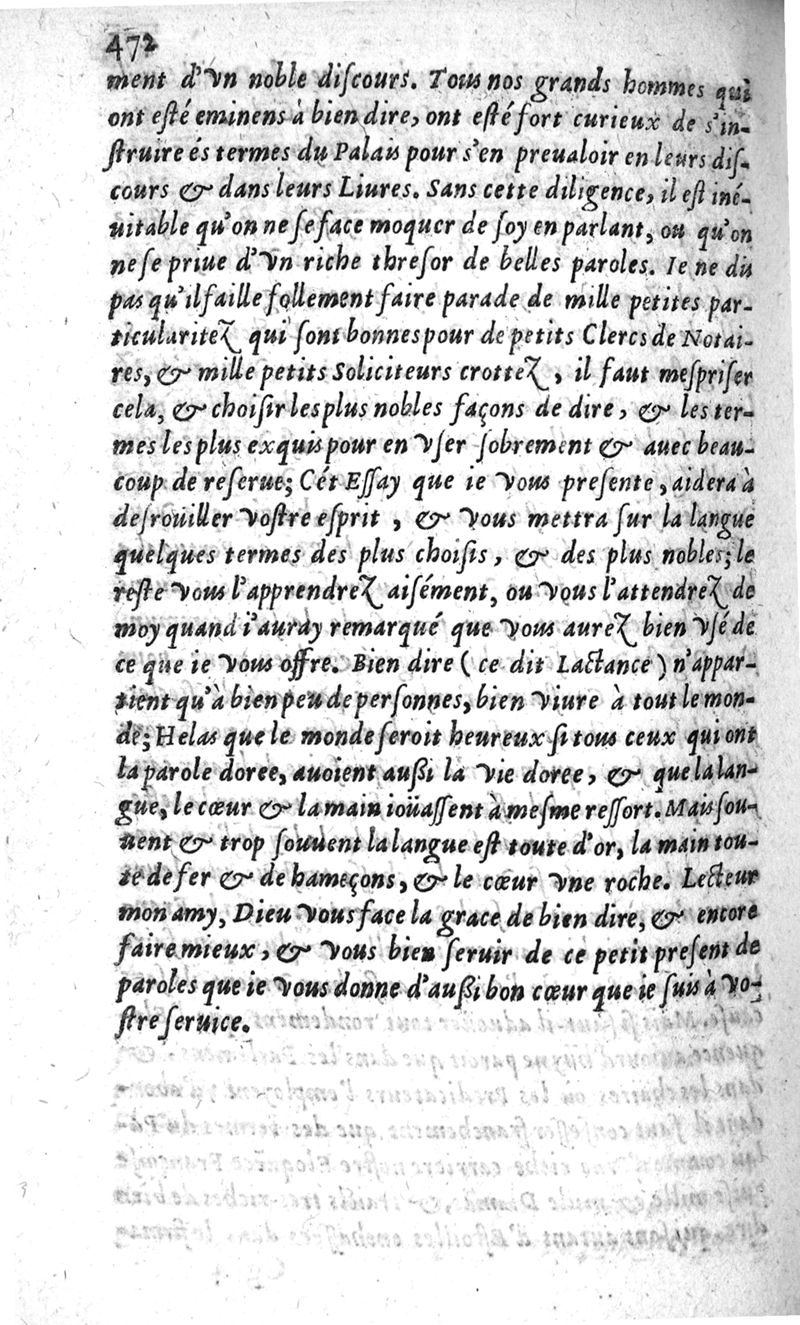 472
ment d'vn noble discours. Tous nos grands hommes qui
ont esté eminens à bien dire, ont esté fort curieux de s'in-
struire és termes du Palais pour s'en preualoir en leurs dis-
cours & dans leurs Liures. Sans cette diligence, il est iné-
uitable qu'on ne se face moquer de soy en parlant, ou qu'on
ne se priue d'vn riche thresor de belles paroles. Ie ne dis
pas qu'il faille follement faire parade de mille petites par-
ticularitez qui sont bonnes pour de petits Clercs de Notai-
res, & mille petits Soliciteurs crottez, il faut mespriser
cela, & choisir les plus nobles façons de dire, & les ter-
mes les plus exquis pour en vser sobrement & auec beau-
coup de reserue; Cét Essay que ie vous presente, aidera à
desroüiller vostre esprit, & vous mettra sur la langue
quelques termes des plus choisis, & des plus nobles; le
reste vous l'apprendrez aisément, ou vous l'attendrez de
moy quand i'auray remarqué que vous aurez bien vsé de
ce que ie vous offre. Bien dire (ce dit Lactance) n'appar-
tient qu'à bien peu de personnes, bien viure à tout le mon-
de; Helas que le monde seroit heureux si tous ceux qui ont
la parole doree, auoient aussi la vie doree, & que la lan-
gue, le cœur & la main ioüassent à mesme ressort. Mais sou-
uent & trop souuent la langue est toute d'or, la main tou-
te de fer & de hameçons, & le cœur vne roche. Lecteur
mon amy, Dieu vous face la grace de bien dire, & encore
faire mieux, & vous bien seruir de ce petit present de
paroles que ie vous donne d'aussi bon cœur que ie suis à vo-
stre seruice.